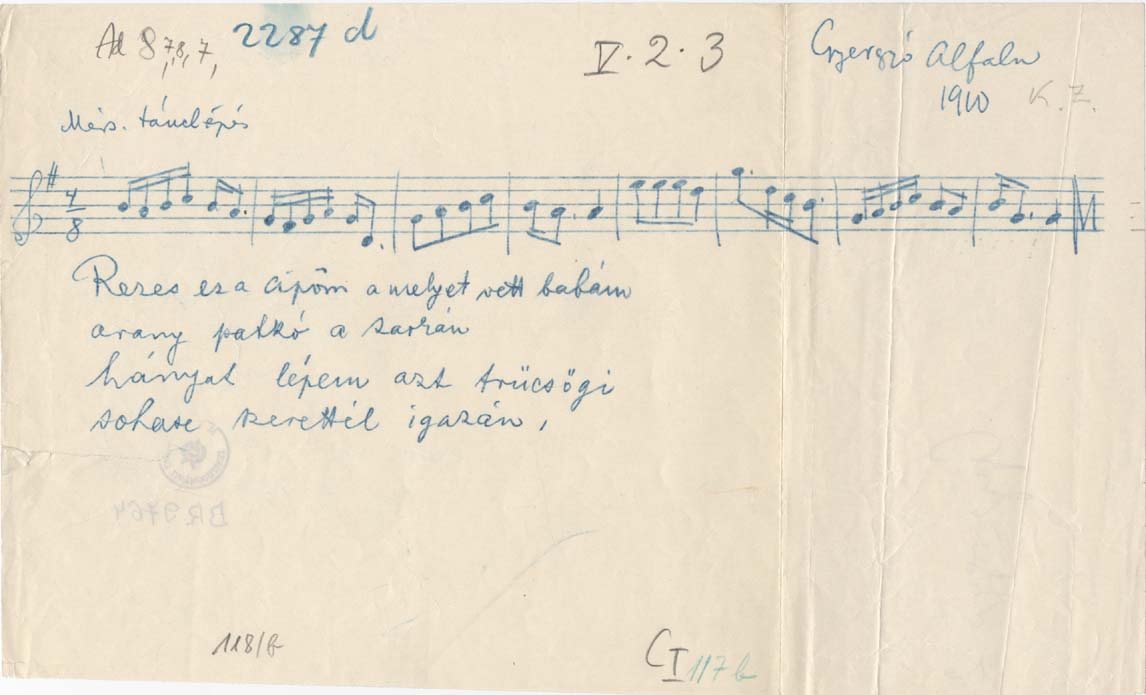 Ad 8,78,7, 2287 d V. 2. 3 Gyergyó Alfalu
1910 K. Z.
Mérs. tánclépés
4/8
Rezes ez a cipőm a melyet vett babám
arany patkó a sarkán
hányat lépem azt
sohase szerettél igazán,
BR 9764
118/b
C I 117 b